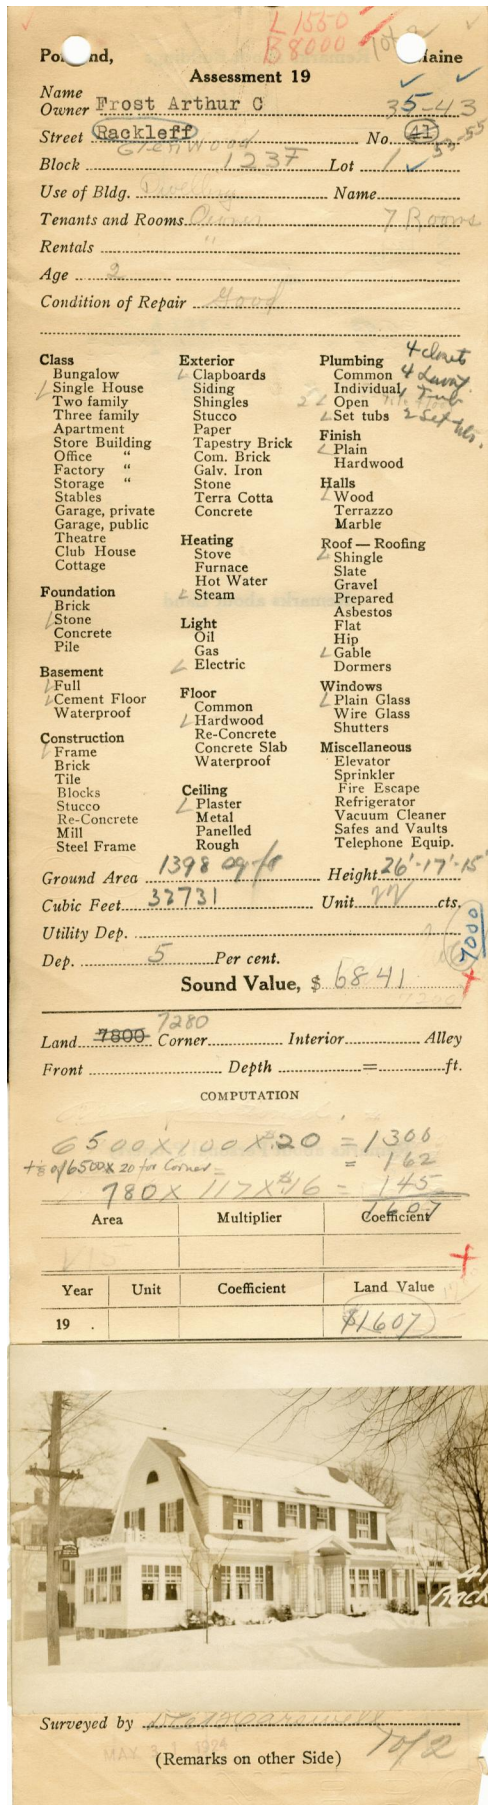 L 1550
B 8000
Portland, Maine
Assessment 19
Name
Owner Frost Arthur C 35-43
Street Rackleff No. 41 53-55
Glenwood
Block 1237 Lot 1
Use of Bldg. Dwelling Name
Tenants and Rooms Owner 7 Rooms
Rentals "
Age 2
Condition of Repair Good
Class
Bungalow
Single House
Two family
Three family
Apartment
Store Building
Office "
Factory "
Storage "
Stables
Garage, private
Garage, public
Theatre
Club House
Cottage
Foundation
Brick
Stone
Concrete
Pile
Basement
Full
Cement Floor
Waterproof
Construction
Frame
Brick
Tile
Blocks
Stucco
Re-Concrete
Mill
Steel Frame
Exterior
Clapboards
Siding
Shingles
Stucco
Paper
Tapestry Brick
Com. Brick
Galv. Iron
Stone
Terra Cotta
Concrete
Heating
Stove
Furnace
Hot Water
Steam
Light
Oil
Gas
Electric
Floor
Common
Hardwood
Re-Concrete
Concrete Slab
Waterproof
Ceiling
Plaster
Metal
Panelled
Rough
Plumbing 4 closet
Common 4 Lavy.
Individual 1 Tub
Open
Set tubs 2 Set tubs.
Finish
Plain
Hardwood
Halls
Wood
Terrazzo
Marble
Roof — Roofing
Shingle
Slate
Gravel
Prepared
Asbestos
Flat
Hip
Gable
Dormers
Windows
Plain Glass
Wire Glass
Shutters
Miscellaneous
Elevator
Sprinkler
Fire Escape
Refrigerator
Vacuum Cleaner
Safes and Vaults
Telephone Equip.
Ground Area 1398 sq ft Height 26'-17'-15'
Cubic Feet 32731 Unit 22 cts.
Utility Dep.
7000
Dep. 5 Per cent.
Sound Value, $ 6841
7280
Land 7800 Corner Interior Alley
Front Depth = ft.
COMPUTATION
6500 X 100 X $.20 = 1300
+⅛ of 6500 X 20 for Corner = 162
780 X 117 X $.16 = 145
1607
Area Multiplier Coefficient
Year Unit Coefficient Land Value
19 . $1607
41
Rack
Surveyed by
MAY 31 1924
(Remarks on other Side) 1 of 2